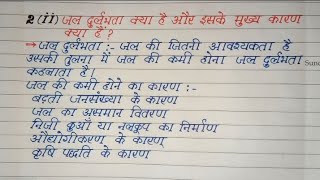 2(ii) जल दुर्लभता क्या है और इसके मुख्य कारण
क्या हैं?
→ जल दुर्लभता :- जल की जितनी आवश्यकता है
उसकी तुलना में जल की कमी होना जल दुर्लभता
कहलाता है।
जल की कमी होने का कारण :-
बढ़ती जनसंख्या के कारण
जल का असमान वितरण
निजी कुओं या नलकूप का निर्माण
औद्योगीकरण के कारण
कृषि पद्धति के कारण